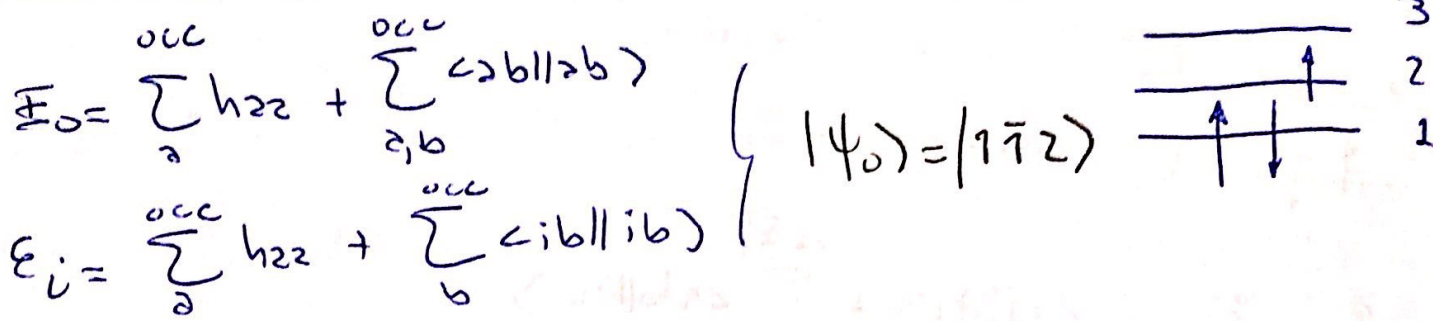 E₀ = Σ_a^{occ} h_{aa} + Σ_{a,b}^{occ} <ab||ab>
ε_i = Σ_a^{occ} h_{aa} + Σ_b^{occ} <ib||ib>
|ψ₀> = |1 1̄ 2>
3
2
1